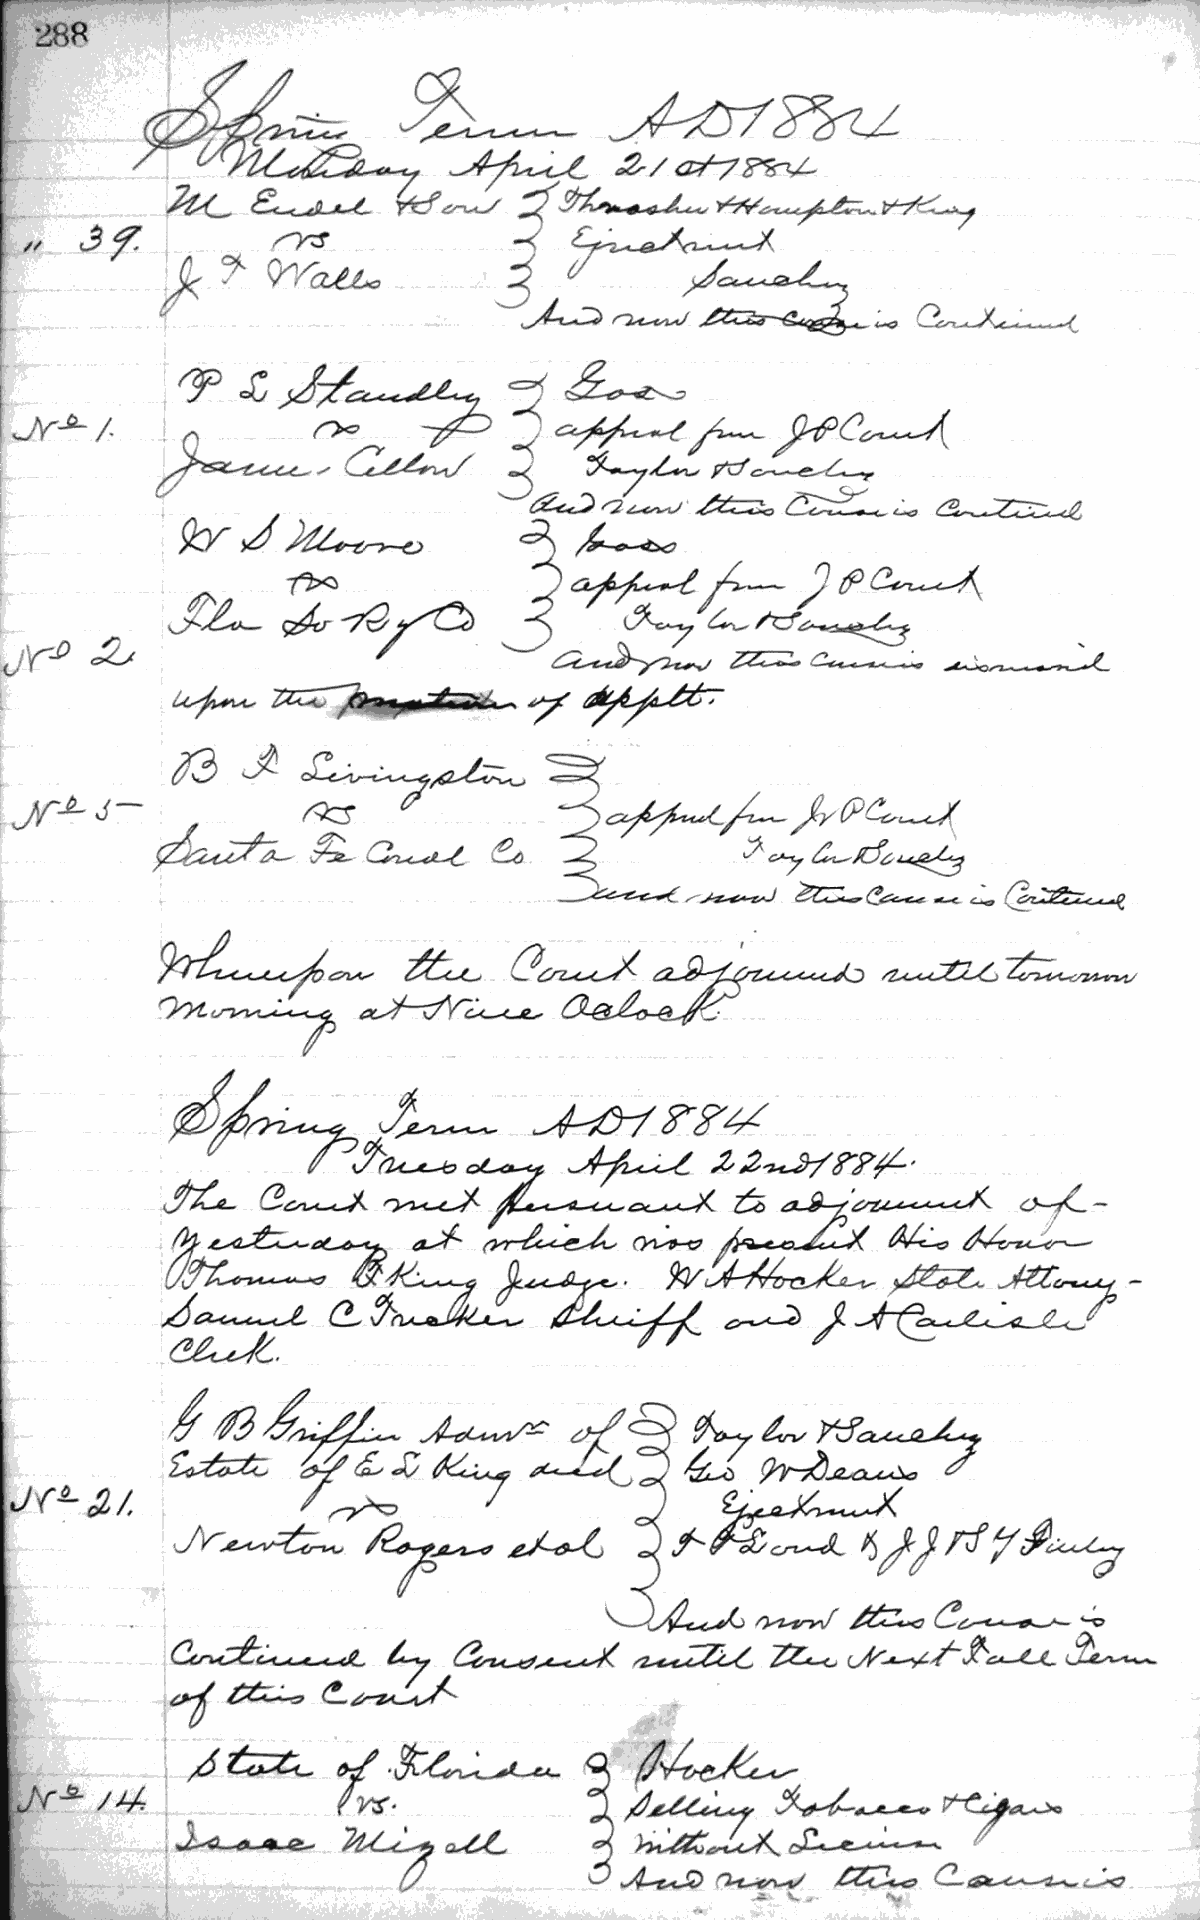 288
Spring Term AD 1884
Monday April 21st 1884
M Endel & Son Thrasher & Hampton & King
" 39. vs Ejectment
J T Walls Sanchez
And now this cause is Continued
P L Standley Goss
No 1. vs appeal from JP Court
James Cellon Taylor & Sanchez
And now this Cause is Contined
W S Moore Goss
vs appeal from JP Court
Fla So Ry Co Taylor & Sanchez
No 2. and now this cause is dismissed
upon the motion of applt.
B F Livingston
No 5 vs appeal from J P Court
Santa Fe Canal Co Taylor & Sanchez
and now this Cause is Continued
Whereupon the Court adjourned until tomorrow
morning at Nine Oclock.
Spring Term AD 1884
Tuesday April 22nd 1884.
The Court met pursuant to adjournment of
yesterday at which was present His Honor
Thomas F King Judge. W A Hocker State Attorney
Samuel C Tucker Sheriff and J A Carlisle
Clerk.
G B Griffin Admr of Taylor & Sanchez
Estate of E L King decd Geo W Deans
Ejectment
No 21. vs
Newton Rogers et al J J & S Y Finley
And now this Cause is
Continued by Consent until the Next Fall Term
of this Court
State of Florida Hocker
No 14. vs. Selling Tobacco & Cigars
Isaac Mizell without License
And now this Cause is